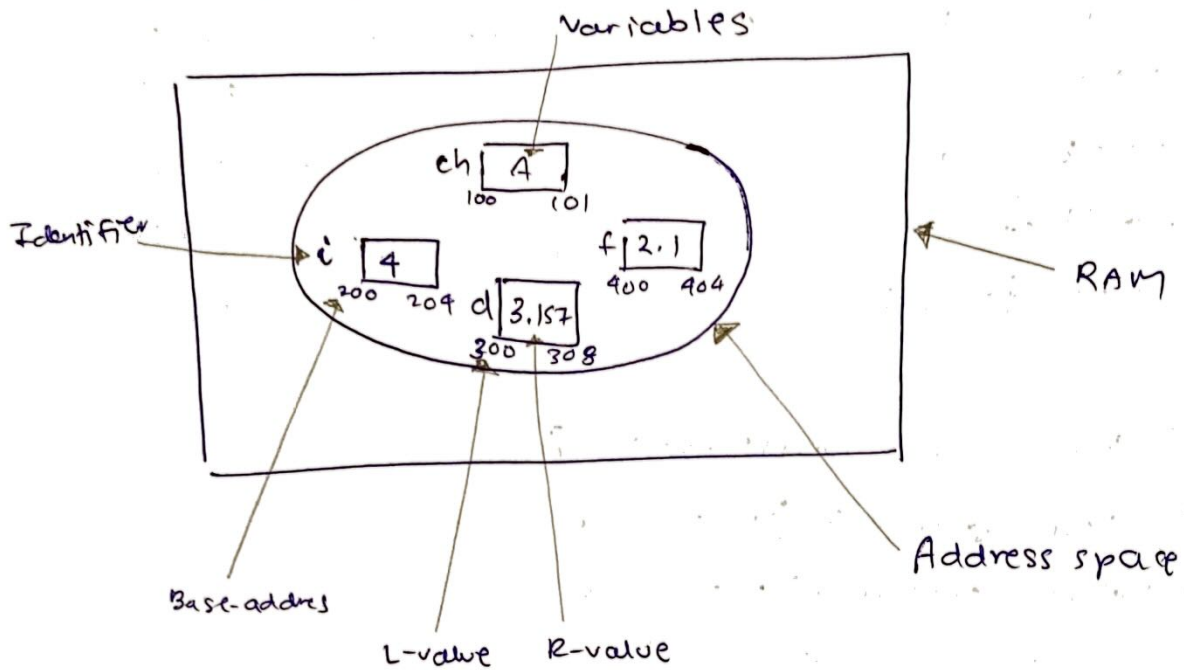 Variables
ch A
100 101
Identifier
i 4
200 204
f 2.1
400 404
d 3.157
300 308
RAM
Address space
Base-addres
L-value R-value